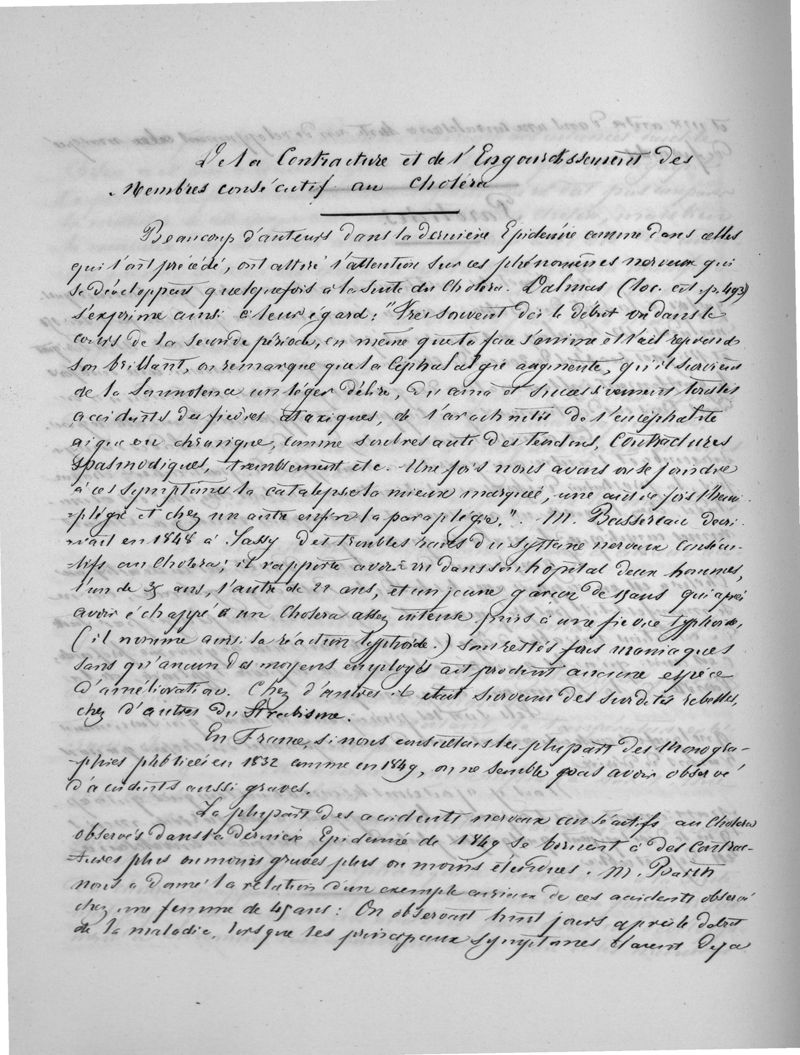 De la Contracture et de l'Engourdissement des
Membres consécutif au Choléra
Beaucoup d'auteurs dans la dernière Epidémie comme dans celles
qui l'ont précédé, ont attiré l'attention sur ces phénomènes nerveux qui
se développent quelquefois à la suite du Choléra. Dalmas (loc. cit. p. 493)
s'exprime ainsi à leur égard : "Très souvent dès le début ou dans le
cours de la seconde période, en même que la face s'anime et l'œil reprend
son brillant, on remarque que la Céphalalgie augmente, qu'il survient
de la Somnolence un léger délire, et successivement tous les
accidents des fièvres ataxiques, de l'arachnitis de l'encéphalite
aigue ou chronique, comme soubresauts des tendons, Contractures
spasmodiques, tremblement etc. Une fois nous avons vu se joindre
à ces symptômes la catalepsie la mieux marquée, une autre fois l'hémi-
plégie et chez un autre enfin la paraplégie,". M. Bassereau décri-
vait en 1848 à Jassy des troubles graves du système nerveux Consécu-
tifs au Choléra; il rapporte avoir vu dans son hôpital deux hommes,
l'un de 35 ans, l'autre de 22 ans, et un jeune garçon de ans qui après
avoir échappé à un Choléra assez intense puis à une fièvre typhoïde,
(il nomme ainsi la réaction typhoïde.) sont restés fous maniaques
sans qu'aucun des moyens employés ait produit aucune espèce
d'amélioration. Chez d'autres il était survenu des surdités rebelles,
chez d'autres du Strabisme.
En France, si nous consultons la plupart des Monogra-
phies publiées en 1832 comme en 1849, on ne semble pas avoir observé
d'accidents aussi graves.
La plupart des accidents nerveux consécutifs au Choléra
observés dans la dernière Epidémie de 1849 se bornent à des Contrac-
tures plus ou moins graves plus ou moins étendues. M. Barth
nous a donné la relation d'un exemple curieux de ces accidents observé
chez une femme de 45 ans : On observait huit jours après le début
de la maladie, lorsque les principaux symptômes étaient déjà